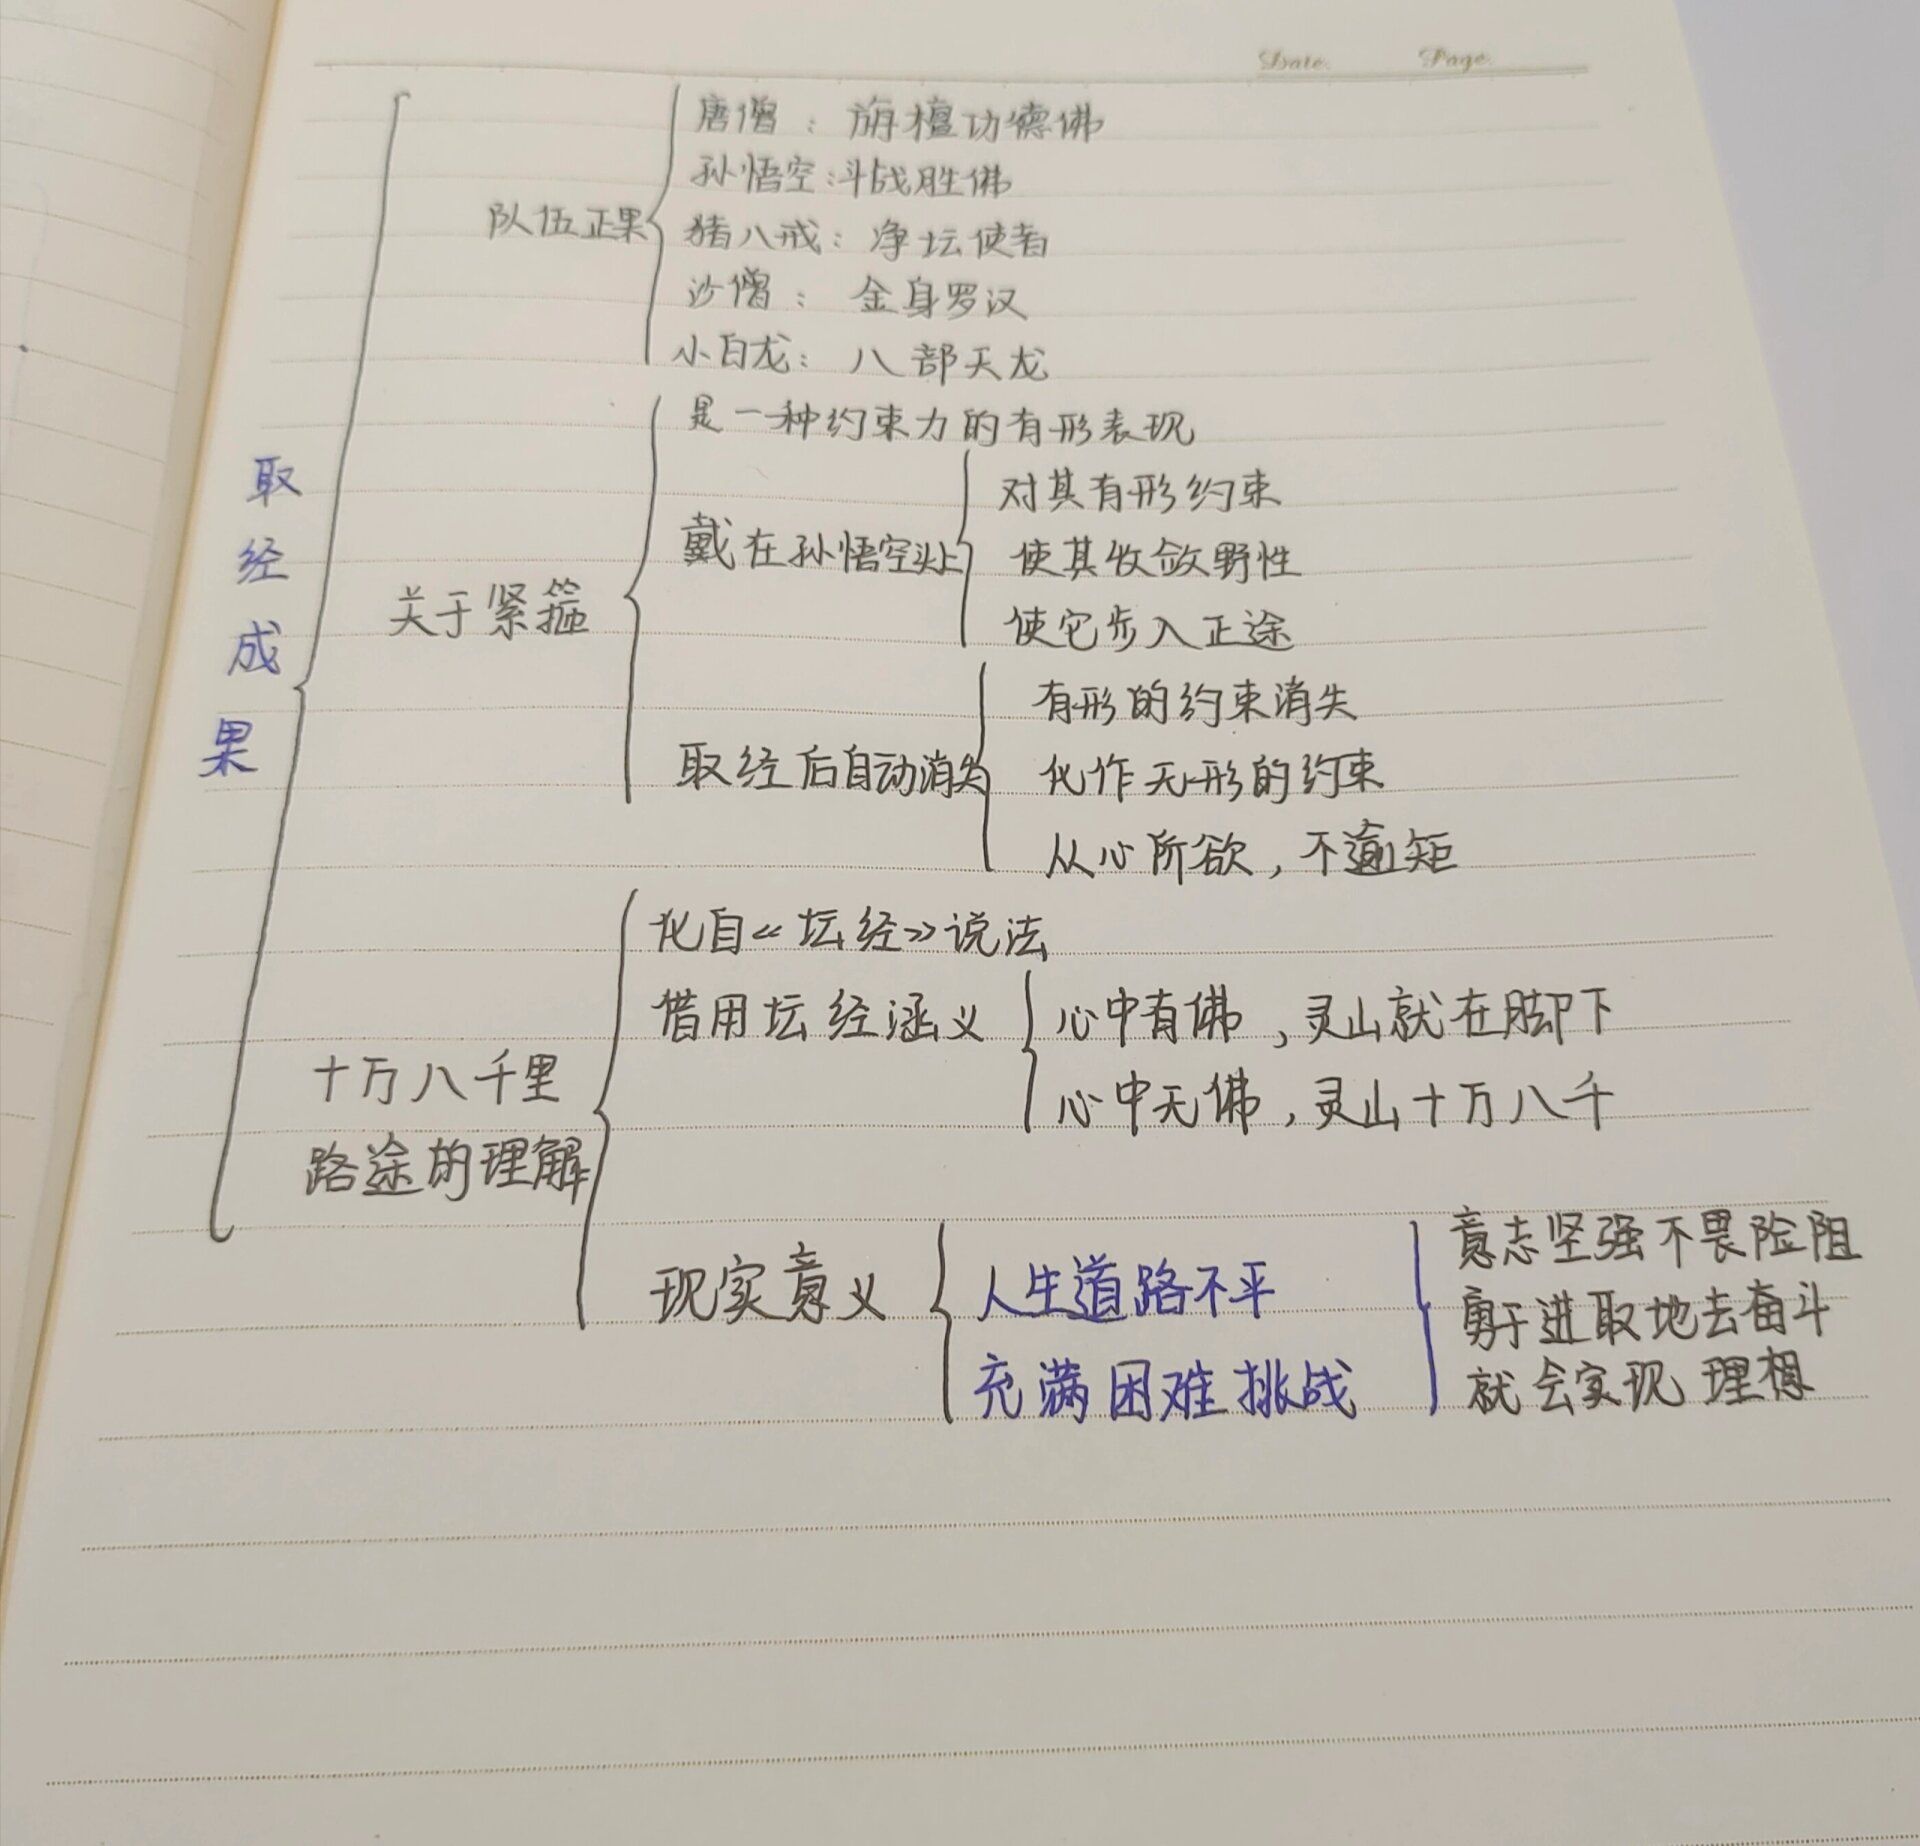 Date.
Page.
取经成果
队伍正果
唐僧：旃檀功德佛
孙悟空：斗战胜佛
猪八戒：净坛使者
沙僧：金身罗汉
小白龙：八部天龙
关于紧箍
是一种约束力的有形表现
戴在孙悟空头上
对其有形约束
使其收敛野性
使它步入正途
取经后自动消失
有形的约束消失
化作无形的约束
从心所欲，不逾矩
十万八千里
路途的理解
化自《坛经》说法
借用坛经涵义
心中有佛，灵山就在脚下
心中无佛，灵山十万八千
现实意义
人生道路不平
充满困难挑战
意志坚强不畏险阻
勇于进取地去奋斗
就会实现理想